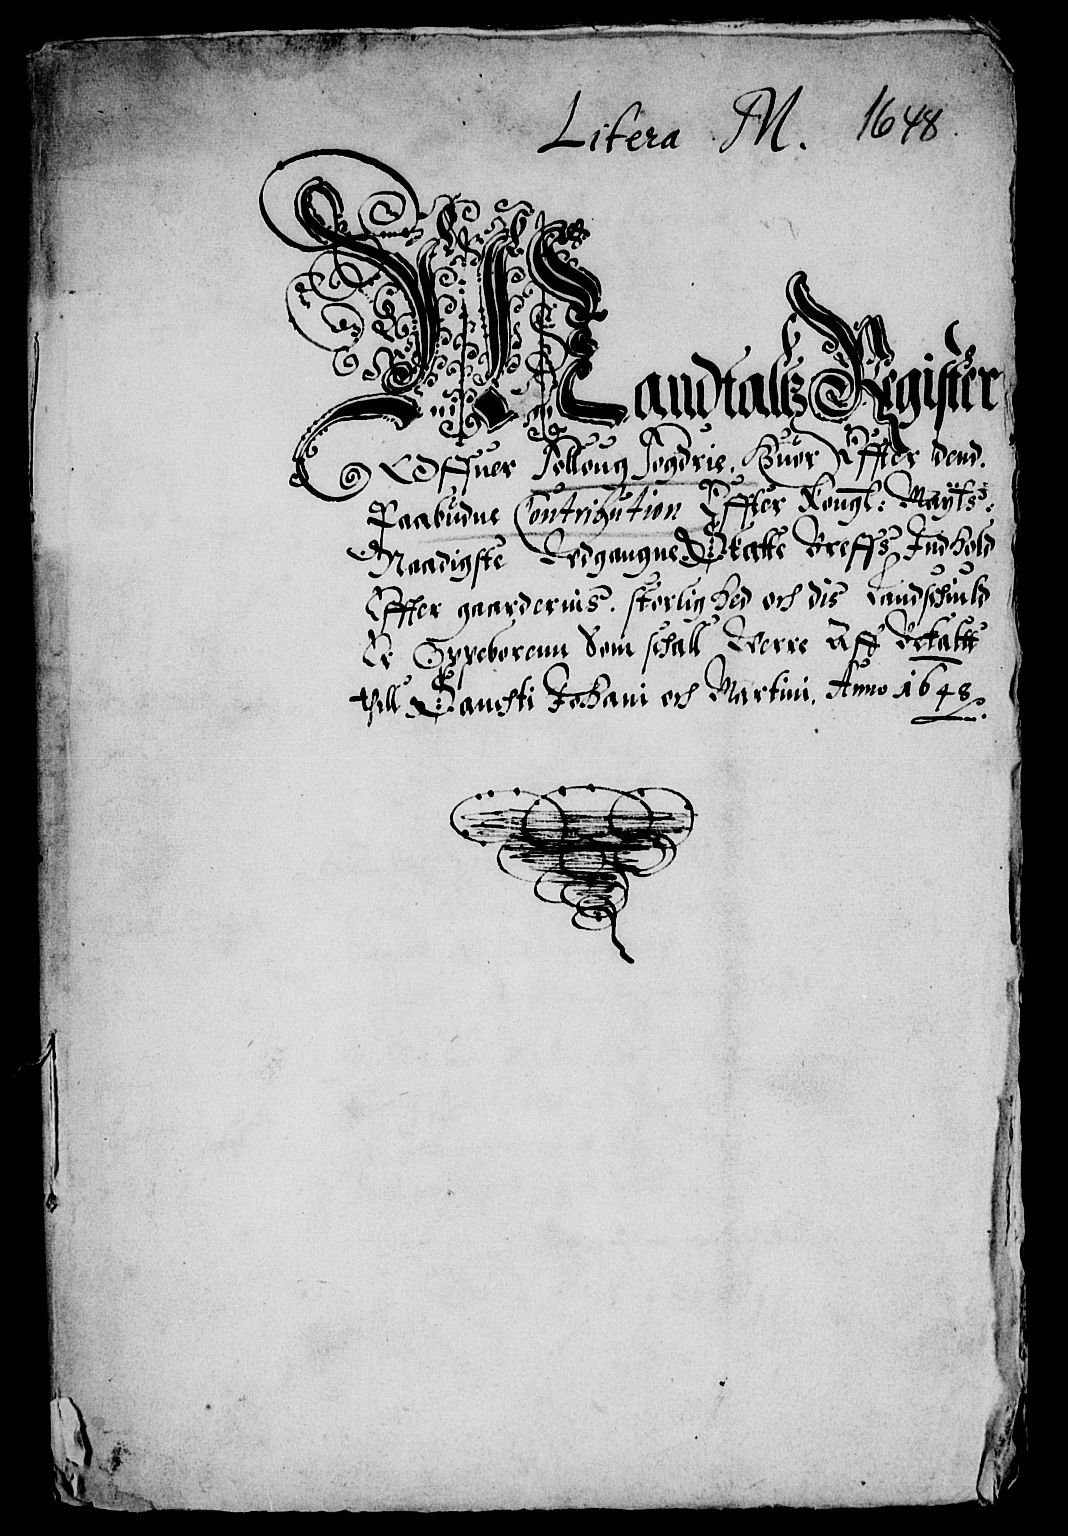 Litera M. 1648
Mandtaltz Register
Offuer Solloug fogdrie. Huor Effter dend.
Paabudne Contribution Effter Kongl: Maytts:
Naadigste Udgangne Skatte Breffs Indhold
Effter gaardernis. storlighed och dis Landschuld
Er Oppeborenn Som schall Verre Aff
thill Sancti Johani och Martini. Anno 1648.